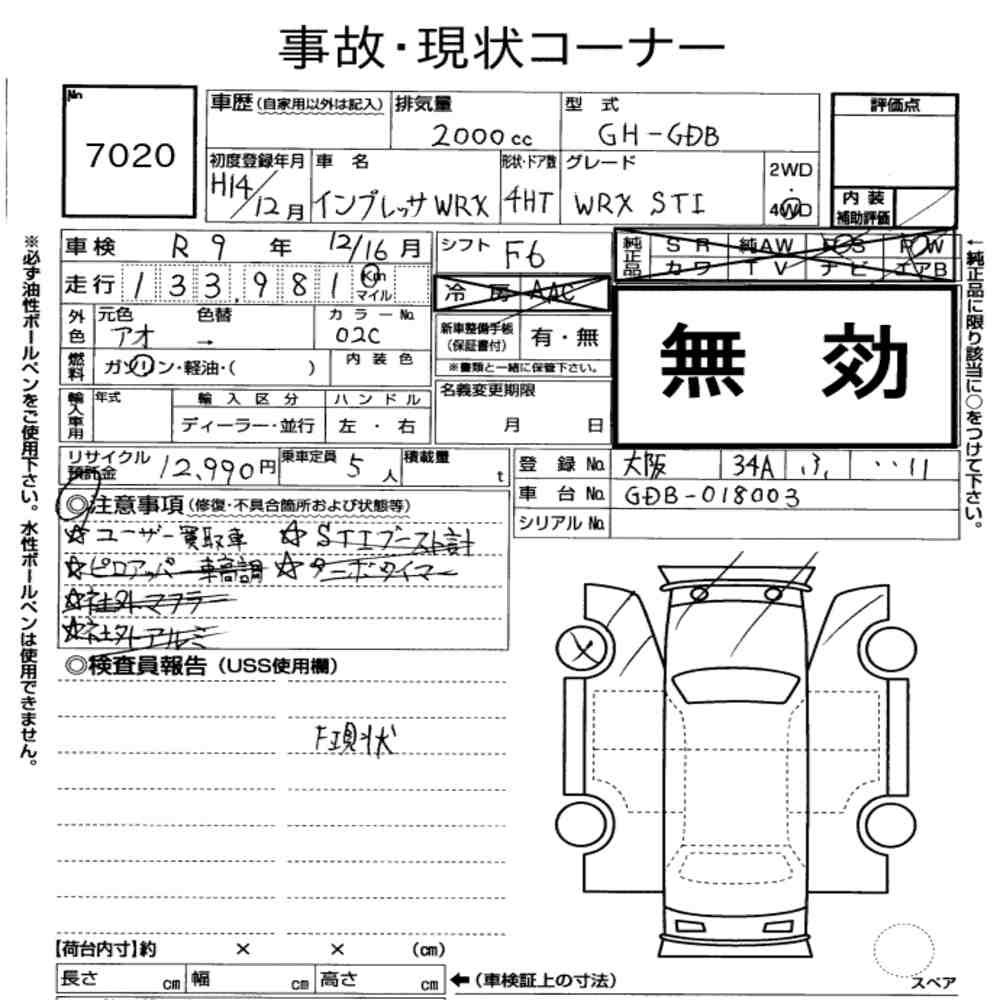 事故・現状コーナー
No.
7020
車歴(自家用以外は記入)
排気量
2000cc
型 式
GH-GDB
評価点
内装
補助評価
初度登録年月
H14/12月
車 名
インプレッサWRX
形状・ドア数
4HT
グレード
WRX STI
2WD
・
4WD
※必ず油性ボールペンをご使用下さい。水性ボールペンは使用できません。
車検 R9年 12/16月
走行 133,981 Km
マイル
外色
元色
アオ
色替
→
カラーNo.
02C
燃料
ガソリン・軽油・( )
内装色
輸入車用
年式
輸入区分
ディーラー・並行
ハンドル
左・右
シフト F6
冷房 AAC
新車整備手帳
(保証書付)
有・無
※書類と一緒に保管下さい。
名義変更期限
月 日
純正品
SR 純AW PS PW
カワ TV ナビ エアB
無 効
←純正品に限り該当に○をつけて下さい。
リサイクル
預託金
12,990円
乗車定員 5人
積載量 t
登録No. 大阪 34A ふ ‥11
車台No. GDB-018003
シリアルNo.
◎注意事項(修復・不具合箇所および状態等)
☆ユーザー買取車 ☆STIブースト計
☆ピロアッパー車高調 ☆ターボタイマー
☆社外マフラー
☆社外アルミ
◎検査員報告(USS使用欄)
F現状
【荷台内寸】約 × × (cm)
長さ cm 幅 cm 高さ cm ←(車検証上の寸法)
スペア